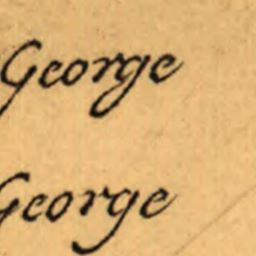 George
George